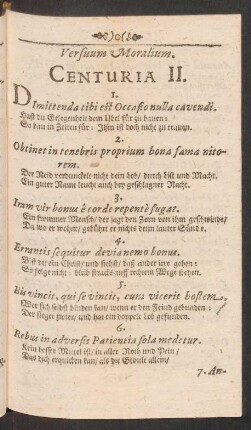 Versuum Moralium.
CENTURIA II.
1.
DImittenda tibi est Occasio nulla cavendi.
Hast du Gelegenheit dem Ubel für zu bauen:
So thu in Zeiten für: Ihm ist doch nicht zu trauen.
2.
Obtinet in tenebris proprium bona fama nito-
rem.
Der Neid verdunckelt nicht dein Lob, durch List und Macht.
Ein guter Name leucht auch bey geschlagner Nacht.
3.
Iram vir bonus è corde repentè fugat.
Ein frommer Mensch, der jagt den Zorn von ihm geschwinde,
Da wo er wohnt, gebühret er nichts denn lauter Sünde.
4.
Errantis sequitur devia nemo bonus.
Bist du ein Christ, und siehst, daß andre irre gehen:
So folge nicht: bleib stracks auff rechtem Wege stehen.
5.
Bis vincit, qui se vincit, cum vicerit hostem.
Wer sich selbst binden kan, wenn er den Feind gebunden:
Der sieget zwier, und hat ein doppelt Lob gefunden.
6.
Rebus in adversis Patientia sola medetur.
Kein besser Mittel ist, in aller Noth und Pein,
Das dich erquicken kan, als die Gedult allein.
7. An-